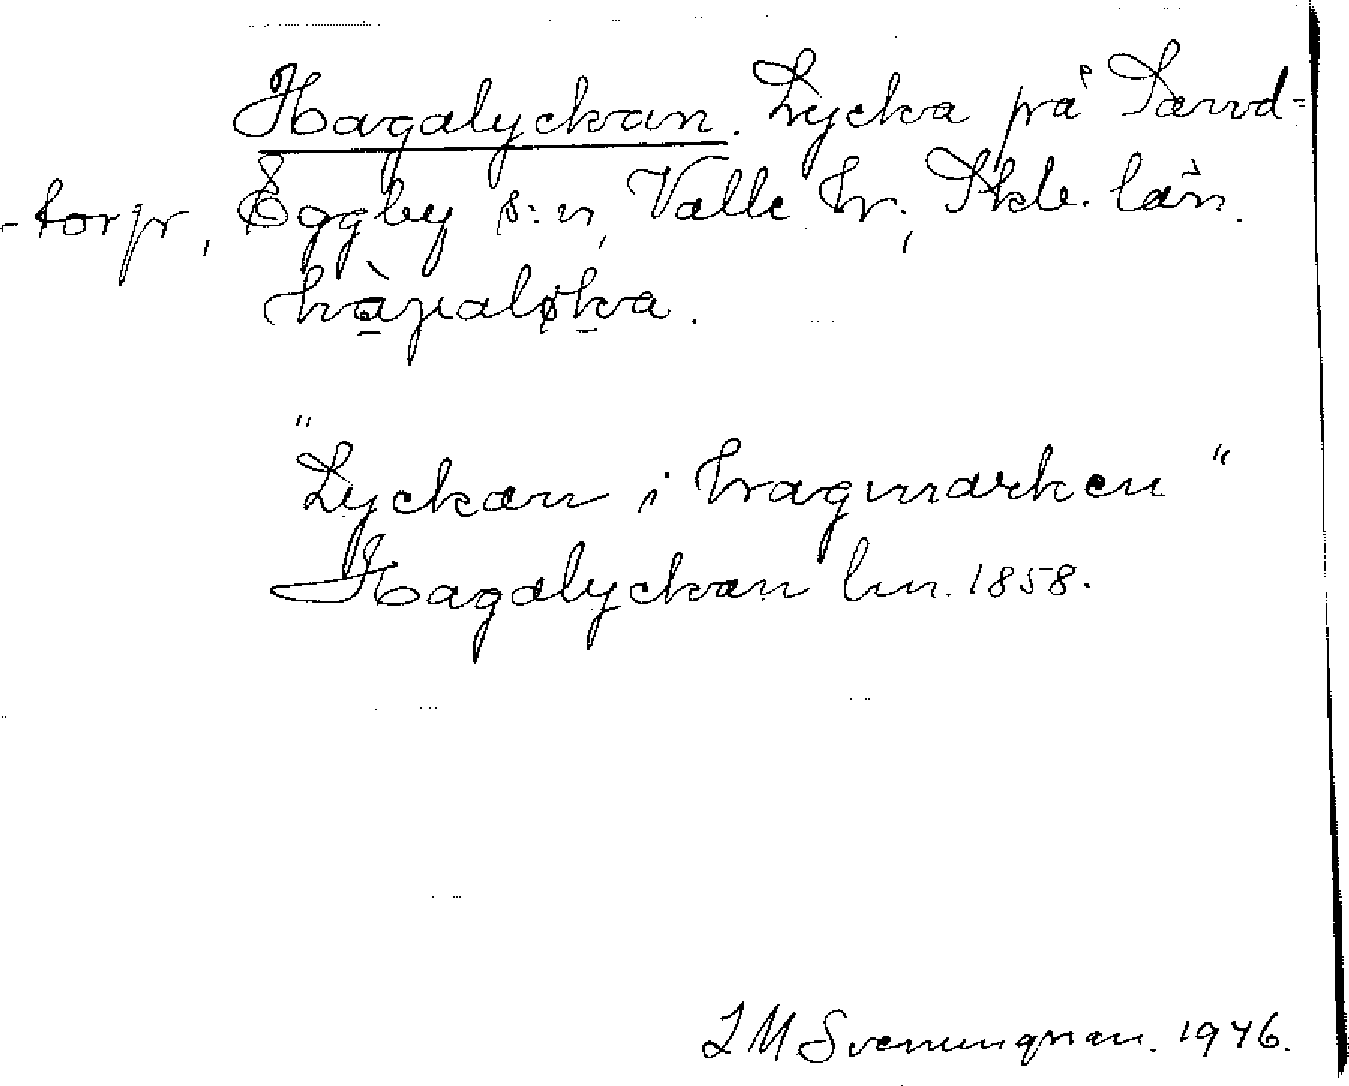 Hagalyckan. Lycka på Sand-
-torp, Eggby s:n, Valle hr, Skb. län.
"Lyckan i hagmarken"
Hagalyckan lm. 1858.
Svenungsson. 1946.